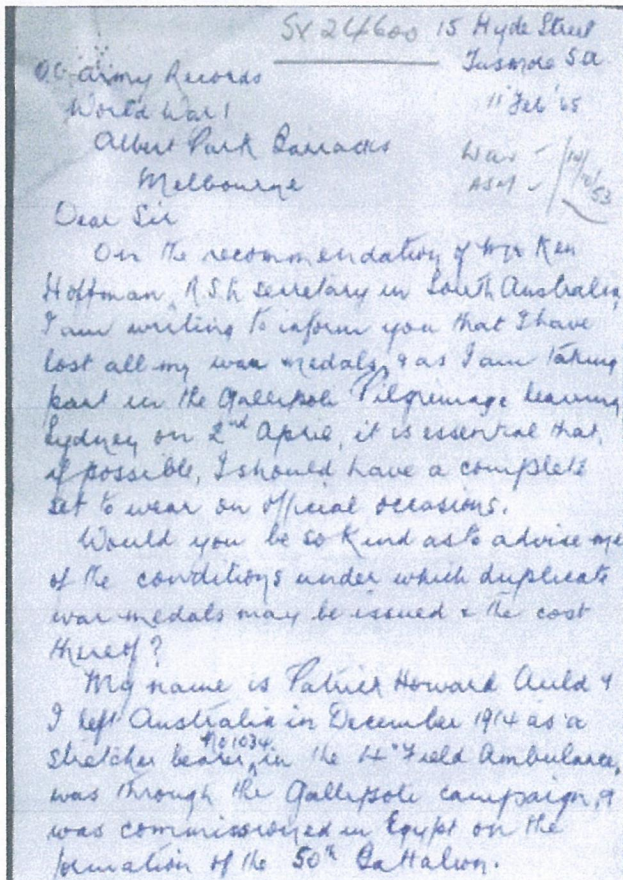 SX 24600 15 Hyde Street
Tusmore SA
O.C. Army Records
World War 1
11 Feb '65
Albert Park Barracks
Melbourne
War -
ASM -
14/10/53
Dear Sir
On the recommendation of Mr Ken
Hoffman, R.S.L secretary in South Australia,
I am writing to inform you that I have
lost all my war medals, & as I am taking
part in the Gallipoli Pilgrimage leaving
Sydney on 2nd April, it is essential that,
if possible, I should have a complete
set to wear on official occasions.
Would you be so kind as to advise me
of the conditions under which duplicate
war medals may be issued & the cost
thereof?
My name is Patrick Howard Auld &
I left Australia in December 1914 as a
stretcher bearer, No 1034, in the 4th Field Ambulance,
was through the Gallipoli campaign, &
was commissioned in Egypt on the
formation of the 50th Battalion.